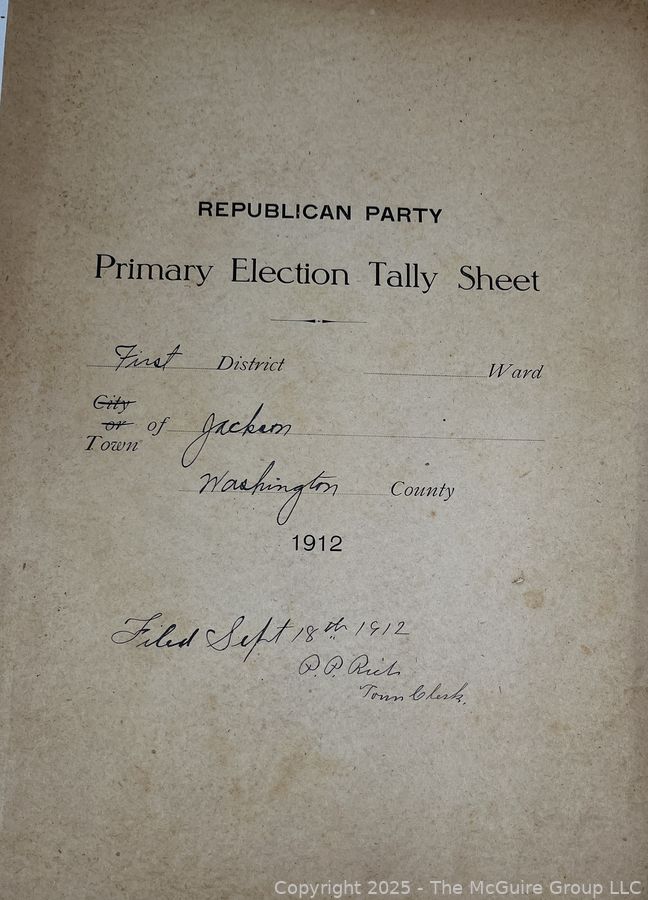 REPUBLICAN PARTY
Primary Election Tally Sheet
First District Ward
City
or
Town of Jackson
Washington County
1912
Filed Sept 18th 1912
P. P. Rich
Town Clerk.
Copyright 2025 - The McGuire Group LLC